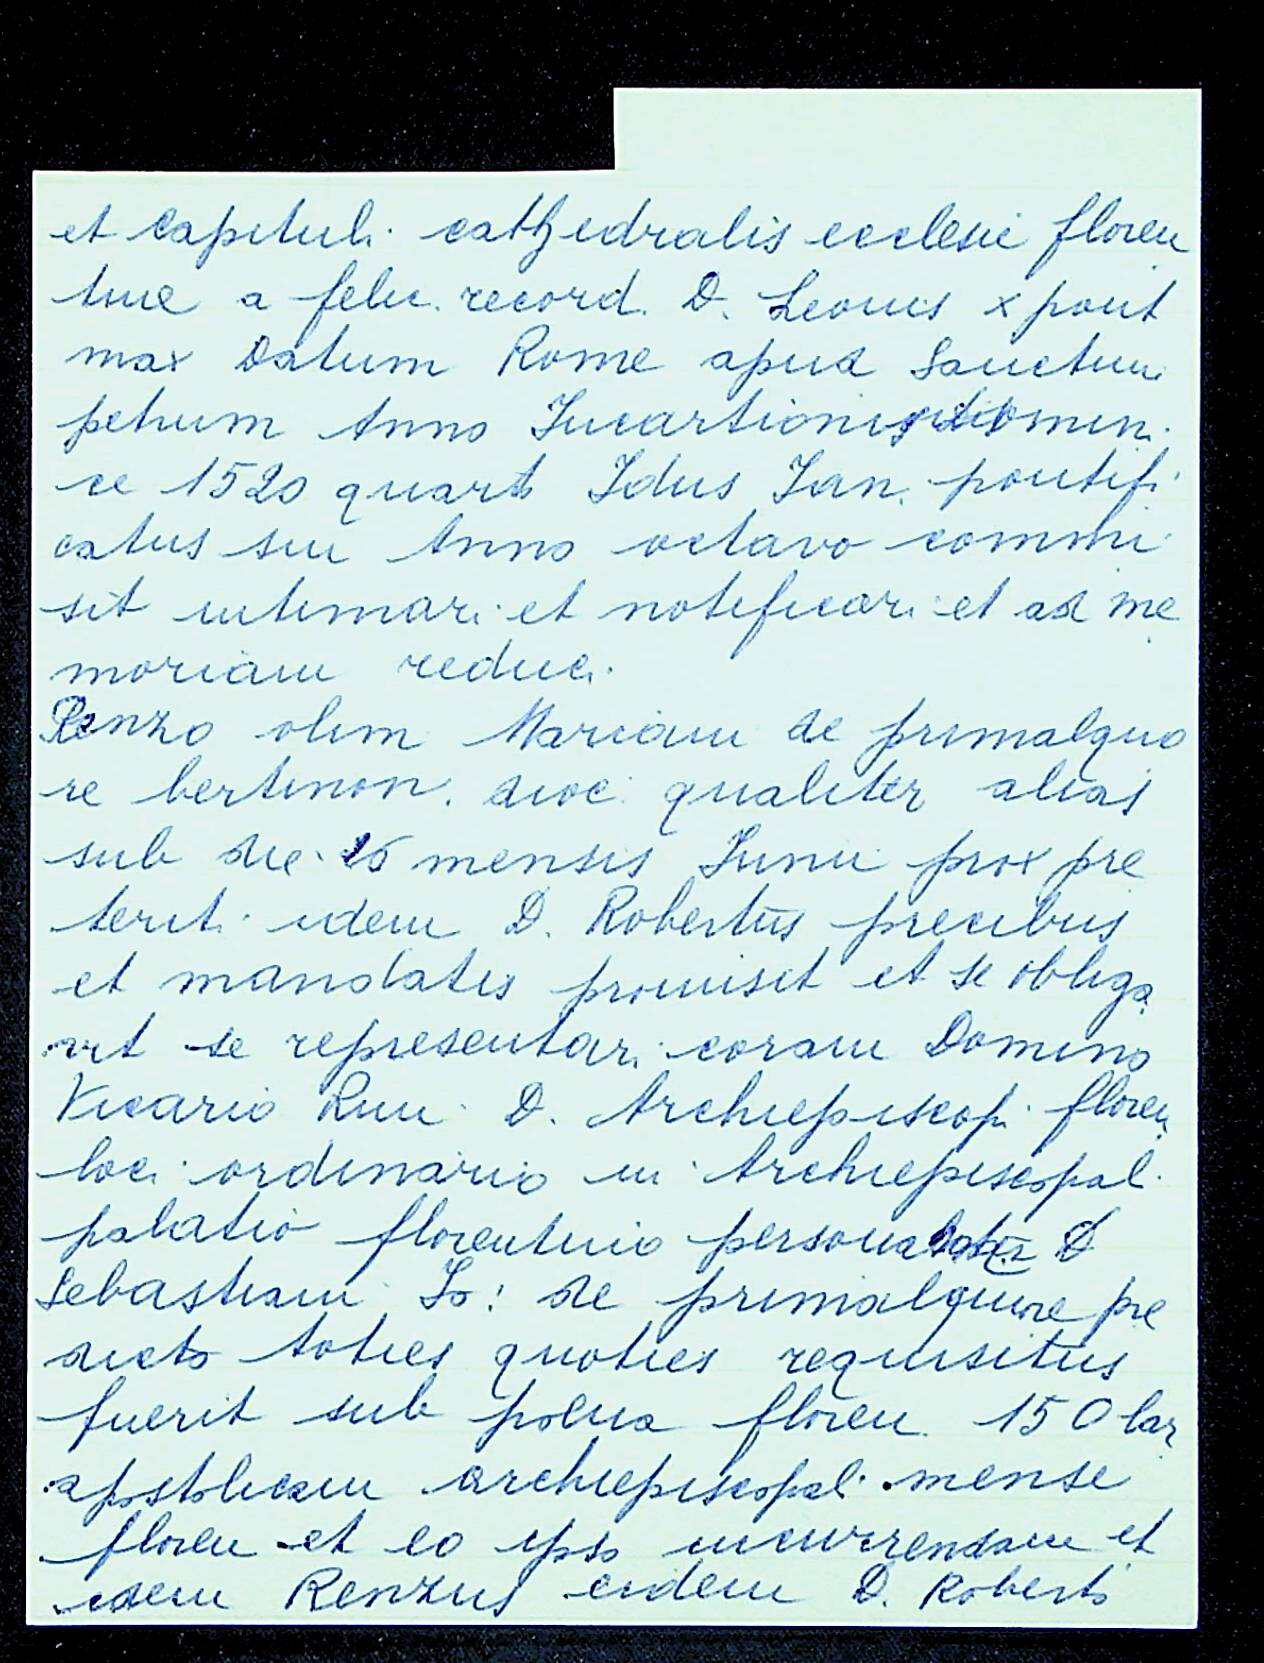 et capituli cathedralis ecclesie floren
tine a felic. record. D. Leonis x pont
max Datum Rome apud Sanctum
petrum Anno Incartionis domini
ce 1520 quart Idus Jan. pontifi
catus sui Anno octavo commi
sit intimari et notificari et ad me
moriam reduci.
Renzo olim Mariani de primalquo
re bertinon. dioc. qualiter alias
sub die 26 mensis Junii prox pre
terit. idem D. Robertus precibus
et mandatis promisit et se obliga
vit se representari coram Domino
Vicario Rmi D. Archiepiscopi floren
loci ordinario in Archiepiscopal.
palatio florentino personaliter D
Sebastiani Jo: de primalquore pre
dicto toties quoties requisitus
fuerit sub pena floren. 150 lar
apostolicam archiepiscopal. mense
floren et eo ipso incurrendam et
idem Renzus eidem D. Roberto